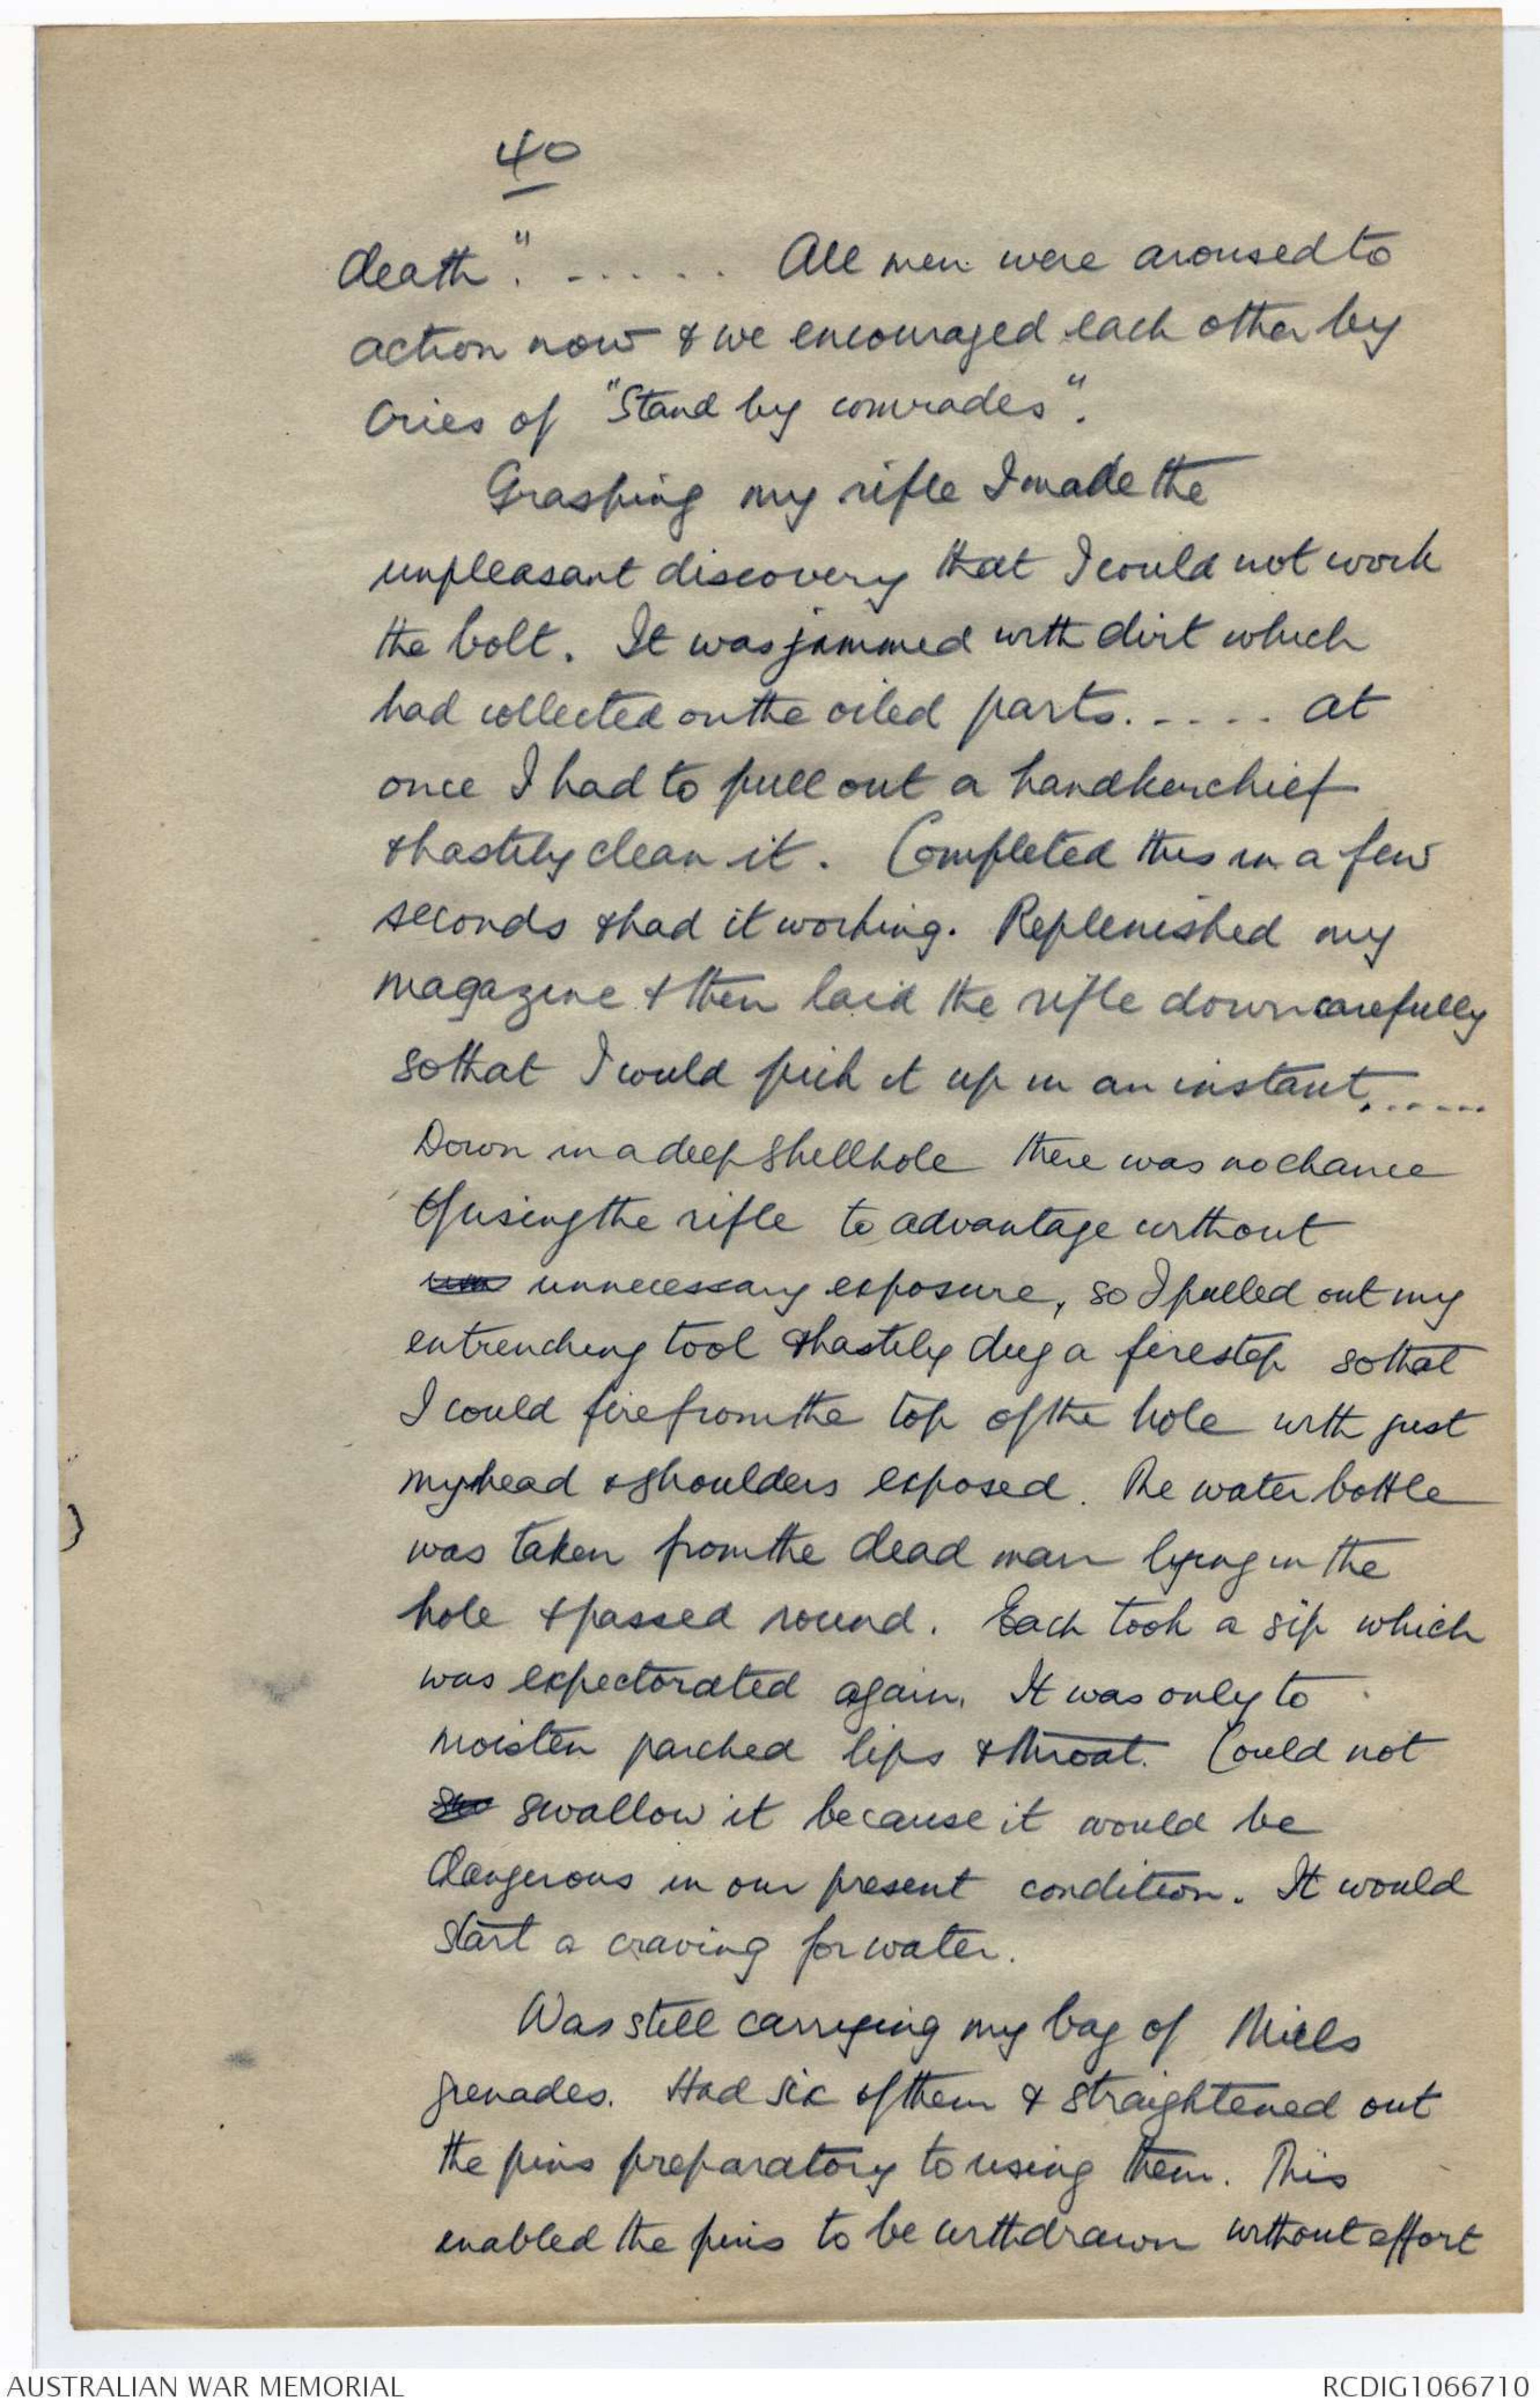 40
death". - . . . . . All men were aroused to
action now & we encouraged each other by
cries of "Stand by comrades".
Grasping my rifle I made the
unpleasant discovery that I could not work
the bolt. It was jammed with dirt which
had collected on the oiled parts. - - . - . at
once I had to pull out a handkerchief
& hastily clean it. Completed this in a few
seconds & had it working. Replenished my
magazine & then laid the rifle down carefully
so that I would pick it up in an instant. . . . . .
Down in a deep shellhole there was no chance
of using the rifle to advantage without
unnecessary exposure, so I pulled out my
entrenching tool & hastily dug a firestep so that
I could fire from the top of the hole with just
my head & shoulders exposed. The water bottle
was taken from the dead man lying in the
hole & passed round. Each took a sip which
was expectorated again. It was only to
moisten parched lips & throat. Could not
swallow it because it would be
dangerous in our present condition. It would
start a craving for water.
Was still carrying my bag of Mills
grenades. Had six of them & straightened out
the pins preparatory to using them. This
enabled the pins to be withdrawn without effort
AUSTRALIAN WAR MEMORIAL
RCDIG1066710